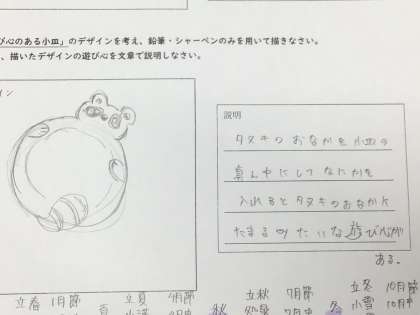 び心のある小皿」のデザインを考え、鉛筆・シャーペンのみを用いて描きなさい。
、描いたデザインの遊び心を文章で説明しなさい。
イン
説明
タヌキのおなかを小皿の
真ん中にしてなにかを
入れるとタヌキのおなかに
たまるみたいな遊び心が
ある。
立春 1月節
立夏 4月節
立秋 7月節
立冬 10月節
夏
秋
冬 小雪 10月中